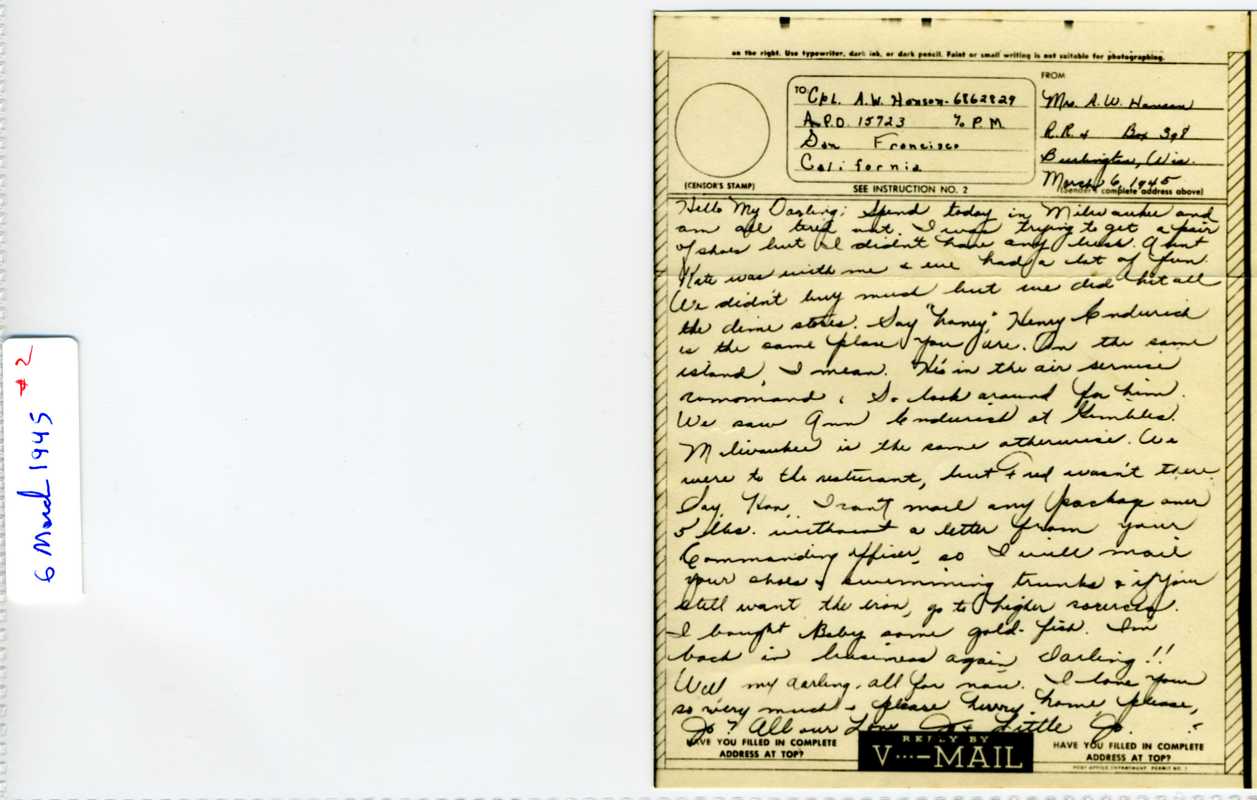 6 March 1945 #2
on the right. Use typewriter, dark ink, or dark pencil. Faint or small writing is not suitable for photographing.
TO Cpl. A.W. Hanson-6862829
A.P.O. 15723 % P.M.
San Francisco
California
(CENSOR'S STAMP)
SEE INSTRUCTION NO. 2
FROM
Mrs. A.W. Hanson
R.R. Box 398
Burlington, Wis.
March 6, 1945
(Sender's complete address above)
Hello My Darling; Spend today in Milwaukee and
am all tired out. I was trying to get a pair
of shoes but I didn't have any luck. Aunt
Kate was with me & we had a lot of fun.
We didn't buy much but we did hit all
the dime stores. Say "honey," Henry
is the same place you are. On the same
island, I mean. He's in the air service
command. So look around for him.
We saw Ann at Gimbles.
Milwaukee is the same otherwise. We
were to the resturant, but Fred wasn't there.
Say, Hon, I can't mail any package over
5 lbs. without a letter from your
Commanding officer, so I will mail
your shoes & swimming trunks & if you
still want the iron, go to higher sources.
I bought Baby some gold-fish. I'm
back in business again Darling!!
Well my darling, all for now. I love you
so very much & please hurry home, please,
Jo? All our Love Jo & Little Jo.
HAVE YOU FILLED IN COMPLETE
ADDRESS AT TOP?
REPLY BY
V···—MAIL
HAVE YOU FILLED IN COMPLETE
ADDRESS AT TOP?
POST OFFICE DEPARTMENT PERMIT NO. 1